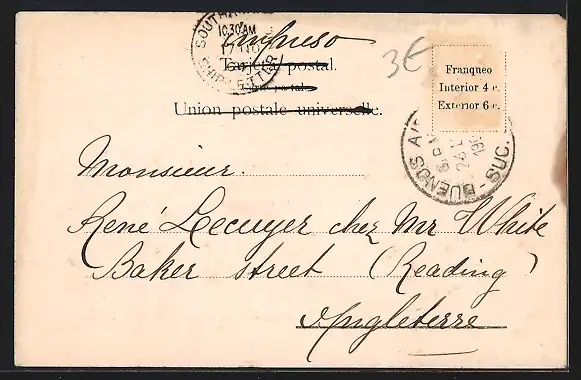 SOUTHAM
10.30 AM
17 NO
SHIP LETTER
Impreso
Tarjeta postal.
Carte postale
Union postale universelle.
3€
Franqueo
Interior 4 c.
Exterior 6 c.
BUENOS AI SUC.
Monsieur.
René Lecuyer chez Mr White
Baker street (Reading)
Angleterre